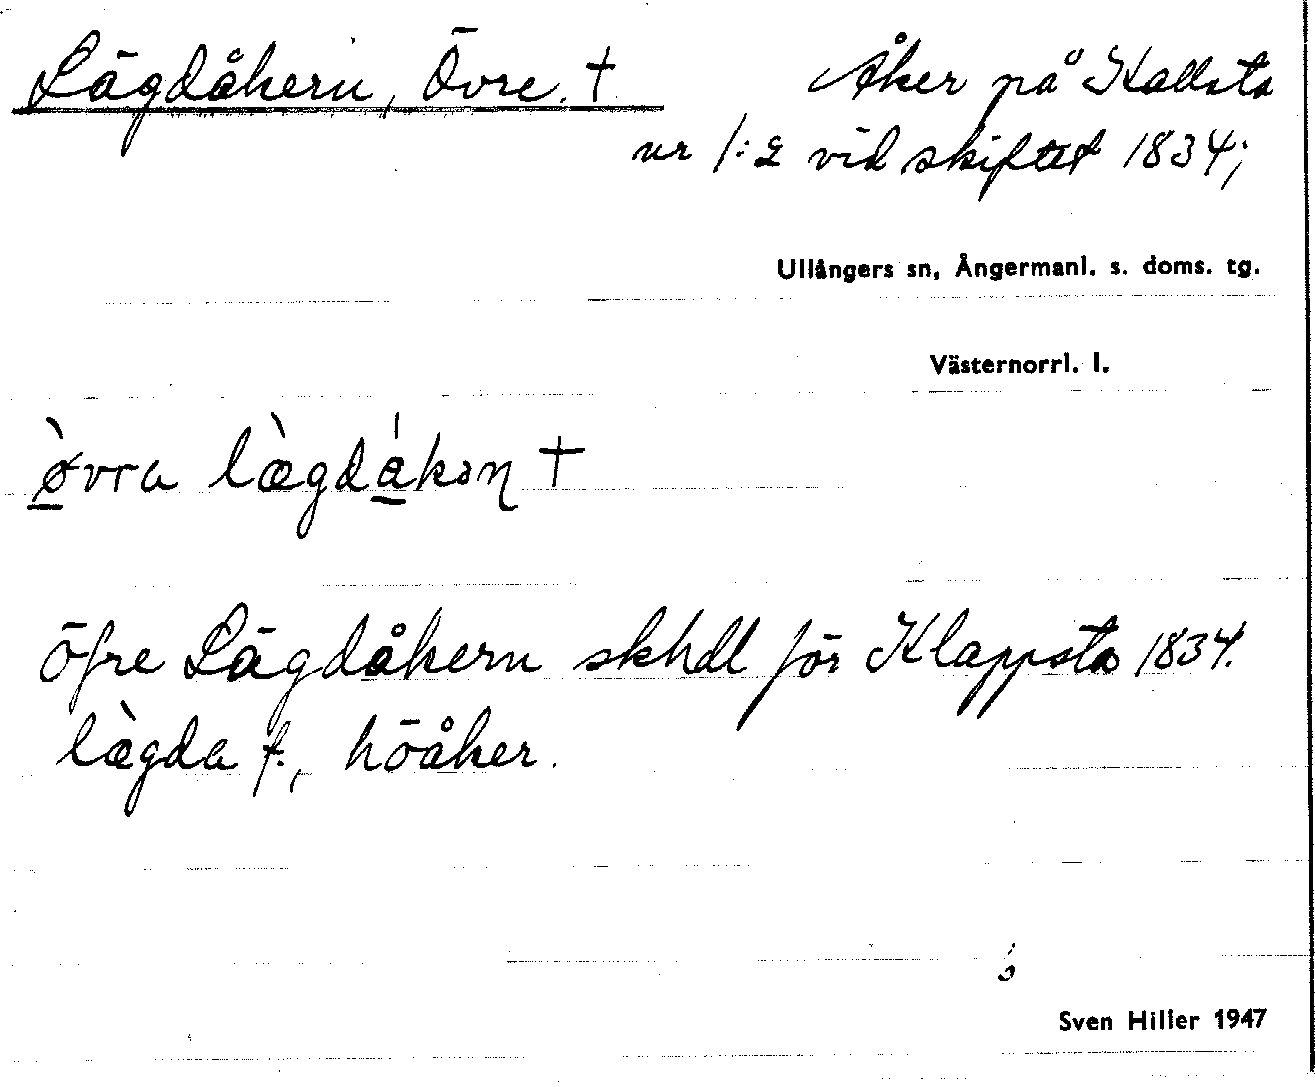 Lägdåkern, Övre. †
Åker på Kallsta
nr 1:2 vid skiftet 1834;
Ullångers sn, Ångermanl. s. doms. tg.
Västernorrl. l.
ø̀vra lægdåkən †
öfre Lägdåkern skhdl för Klappsta 1834.
lægda f., höåker.
Sven Hiller 1947